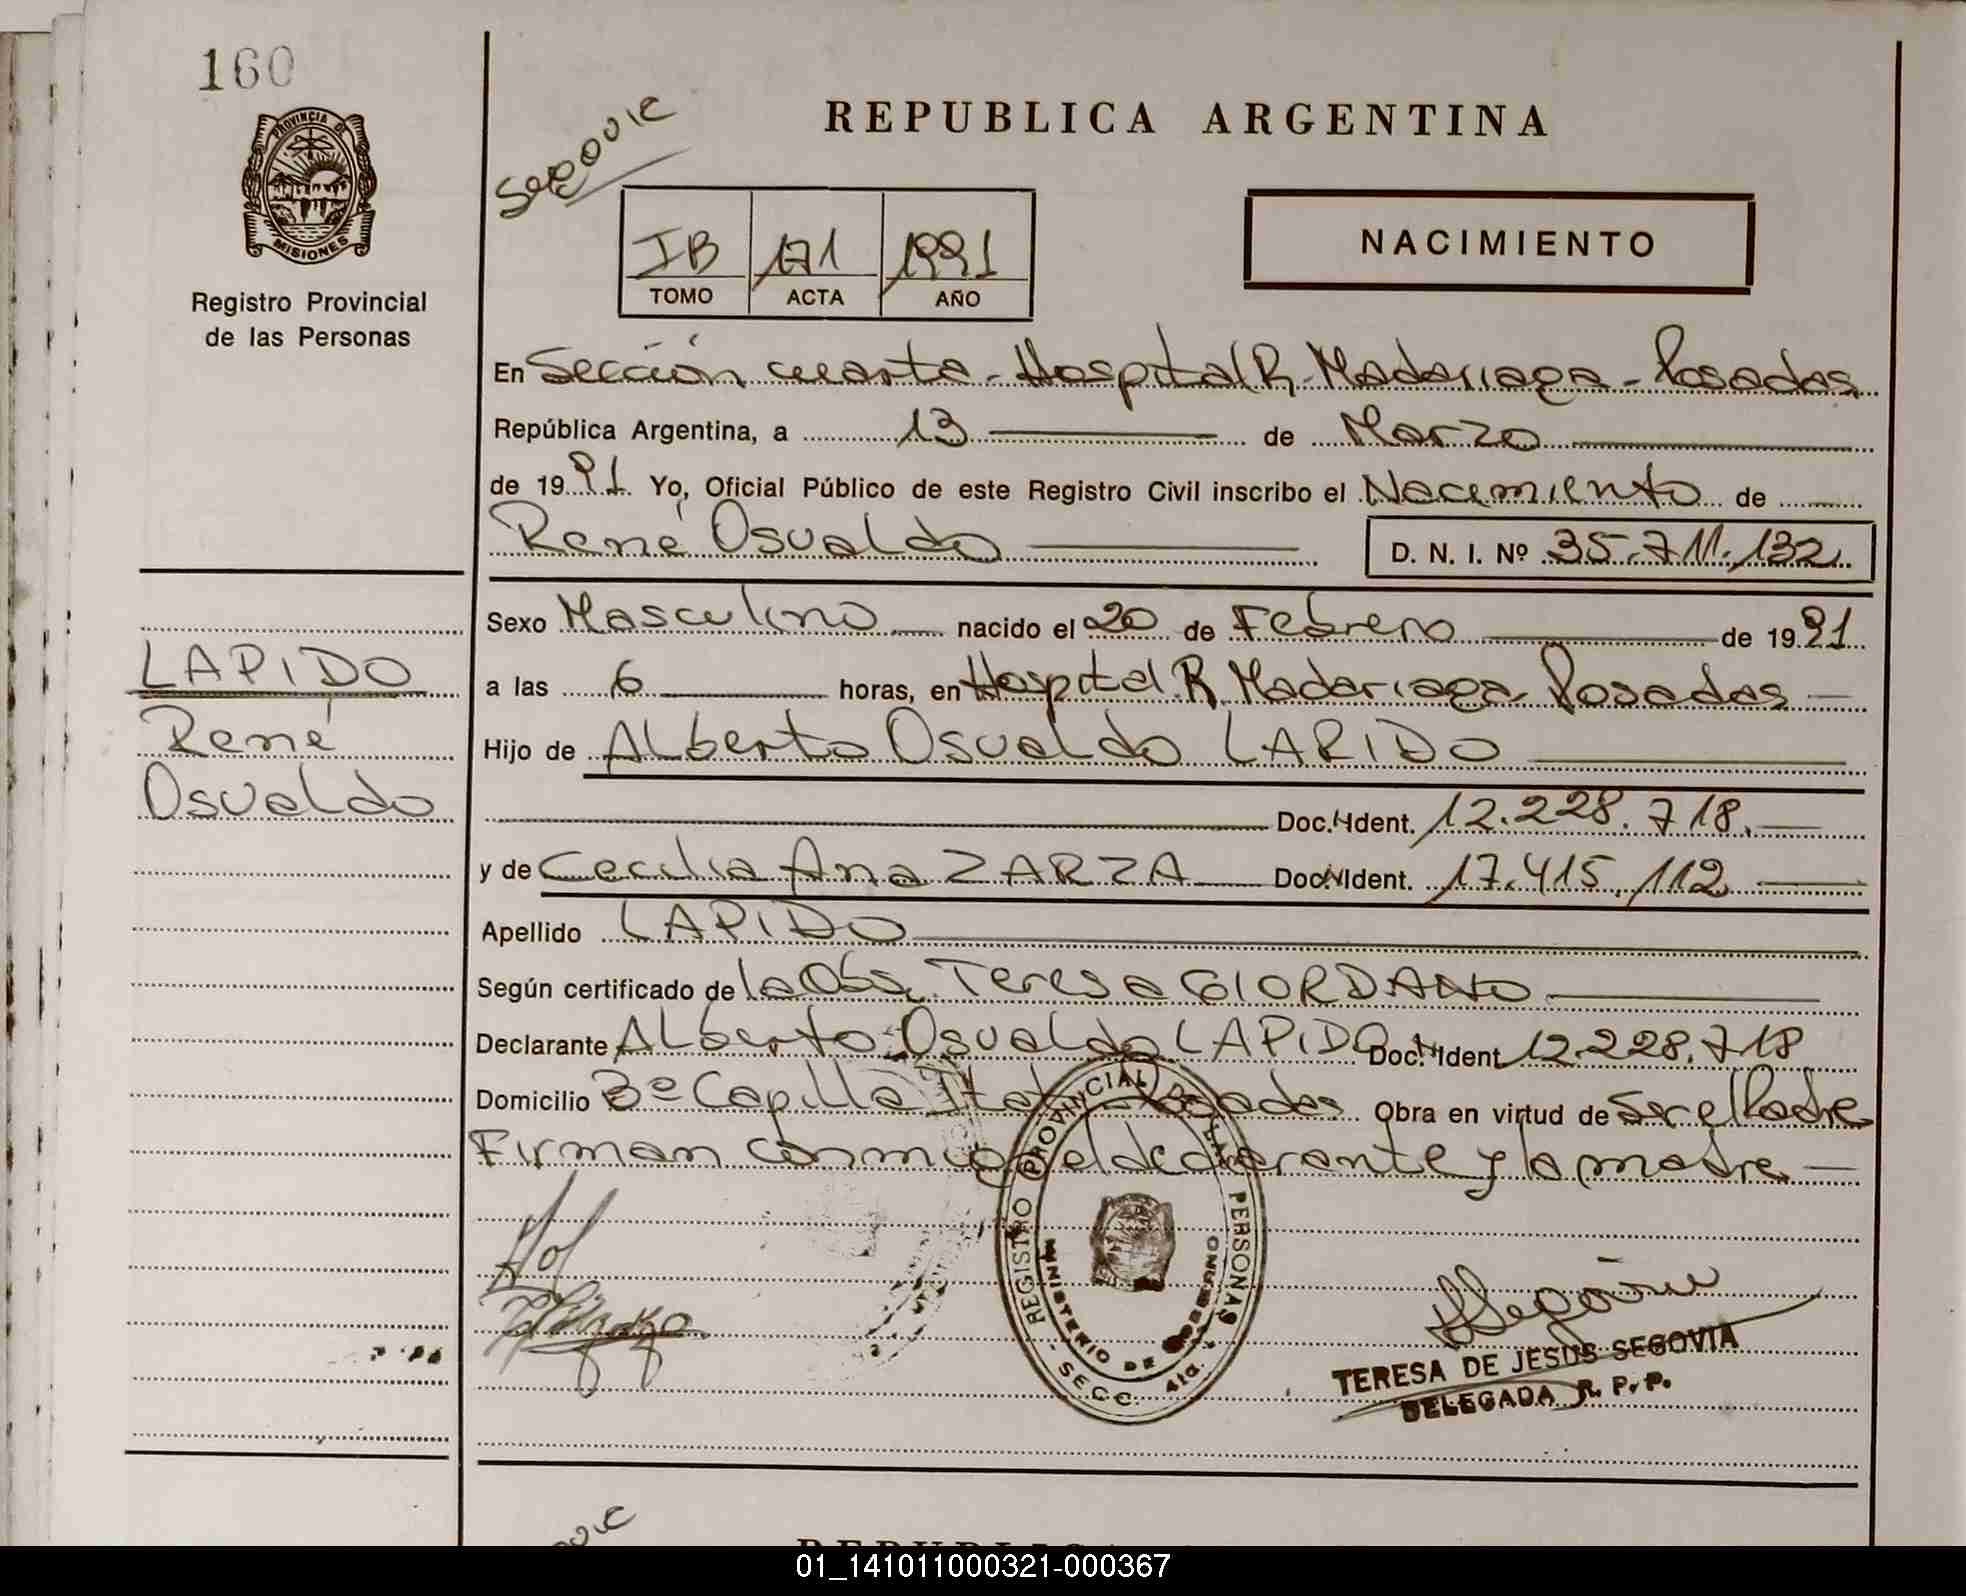 160
PROVINCIA DE
MISIONES
Registro Provincial
de las Personas
Segovia
REPUBLICA ARGENTINA
IB 171 1991
TOMO ACTA AÑO
NACIMIENTO
En Sección cuarta - Hospital R. Madariaga - Posadas
República Argentina, a 13 de Marzo
de 1991. Yo, Oficial Público de este Registro Civil inscribo el Nacimiento de
René Osvaldo D. N. I. Nº 35.711.132
Sexo Masculino nacido el 20 de Febrero de 1991
a las 6 horas, en Hospital R. Madariaga Posadas
Hijo de Alberto Osvaldo LAPIDO
Doc. N Ident. 12.228.718.
y de Cecilia Ana ZARZA Doc. N Ident. 17.415.112
Apellido LAPIDO
Según certificado de la Obs. Teresa GIORDANO
Declarante Alberto Osvaldo LAPIDO Doc. N Ident. 12.228.718
Domicilio Bº Capilla Posadas Obra en virtud de Ser el Padre
Firman conmigo el declarante y la madre
LAPIDO
René
Osvaldo
REGISTRO PROVINCIAL DE LAS PERSONAS
MINISTERIO DE GOBIERNO
SECC. 4ta.
Segovia
TERESA DE JESUS SEGOVIA
DELEGADA R. P. P.
REPUBLICA
01_141011000321-000367